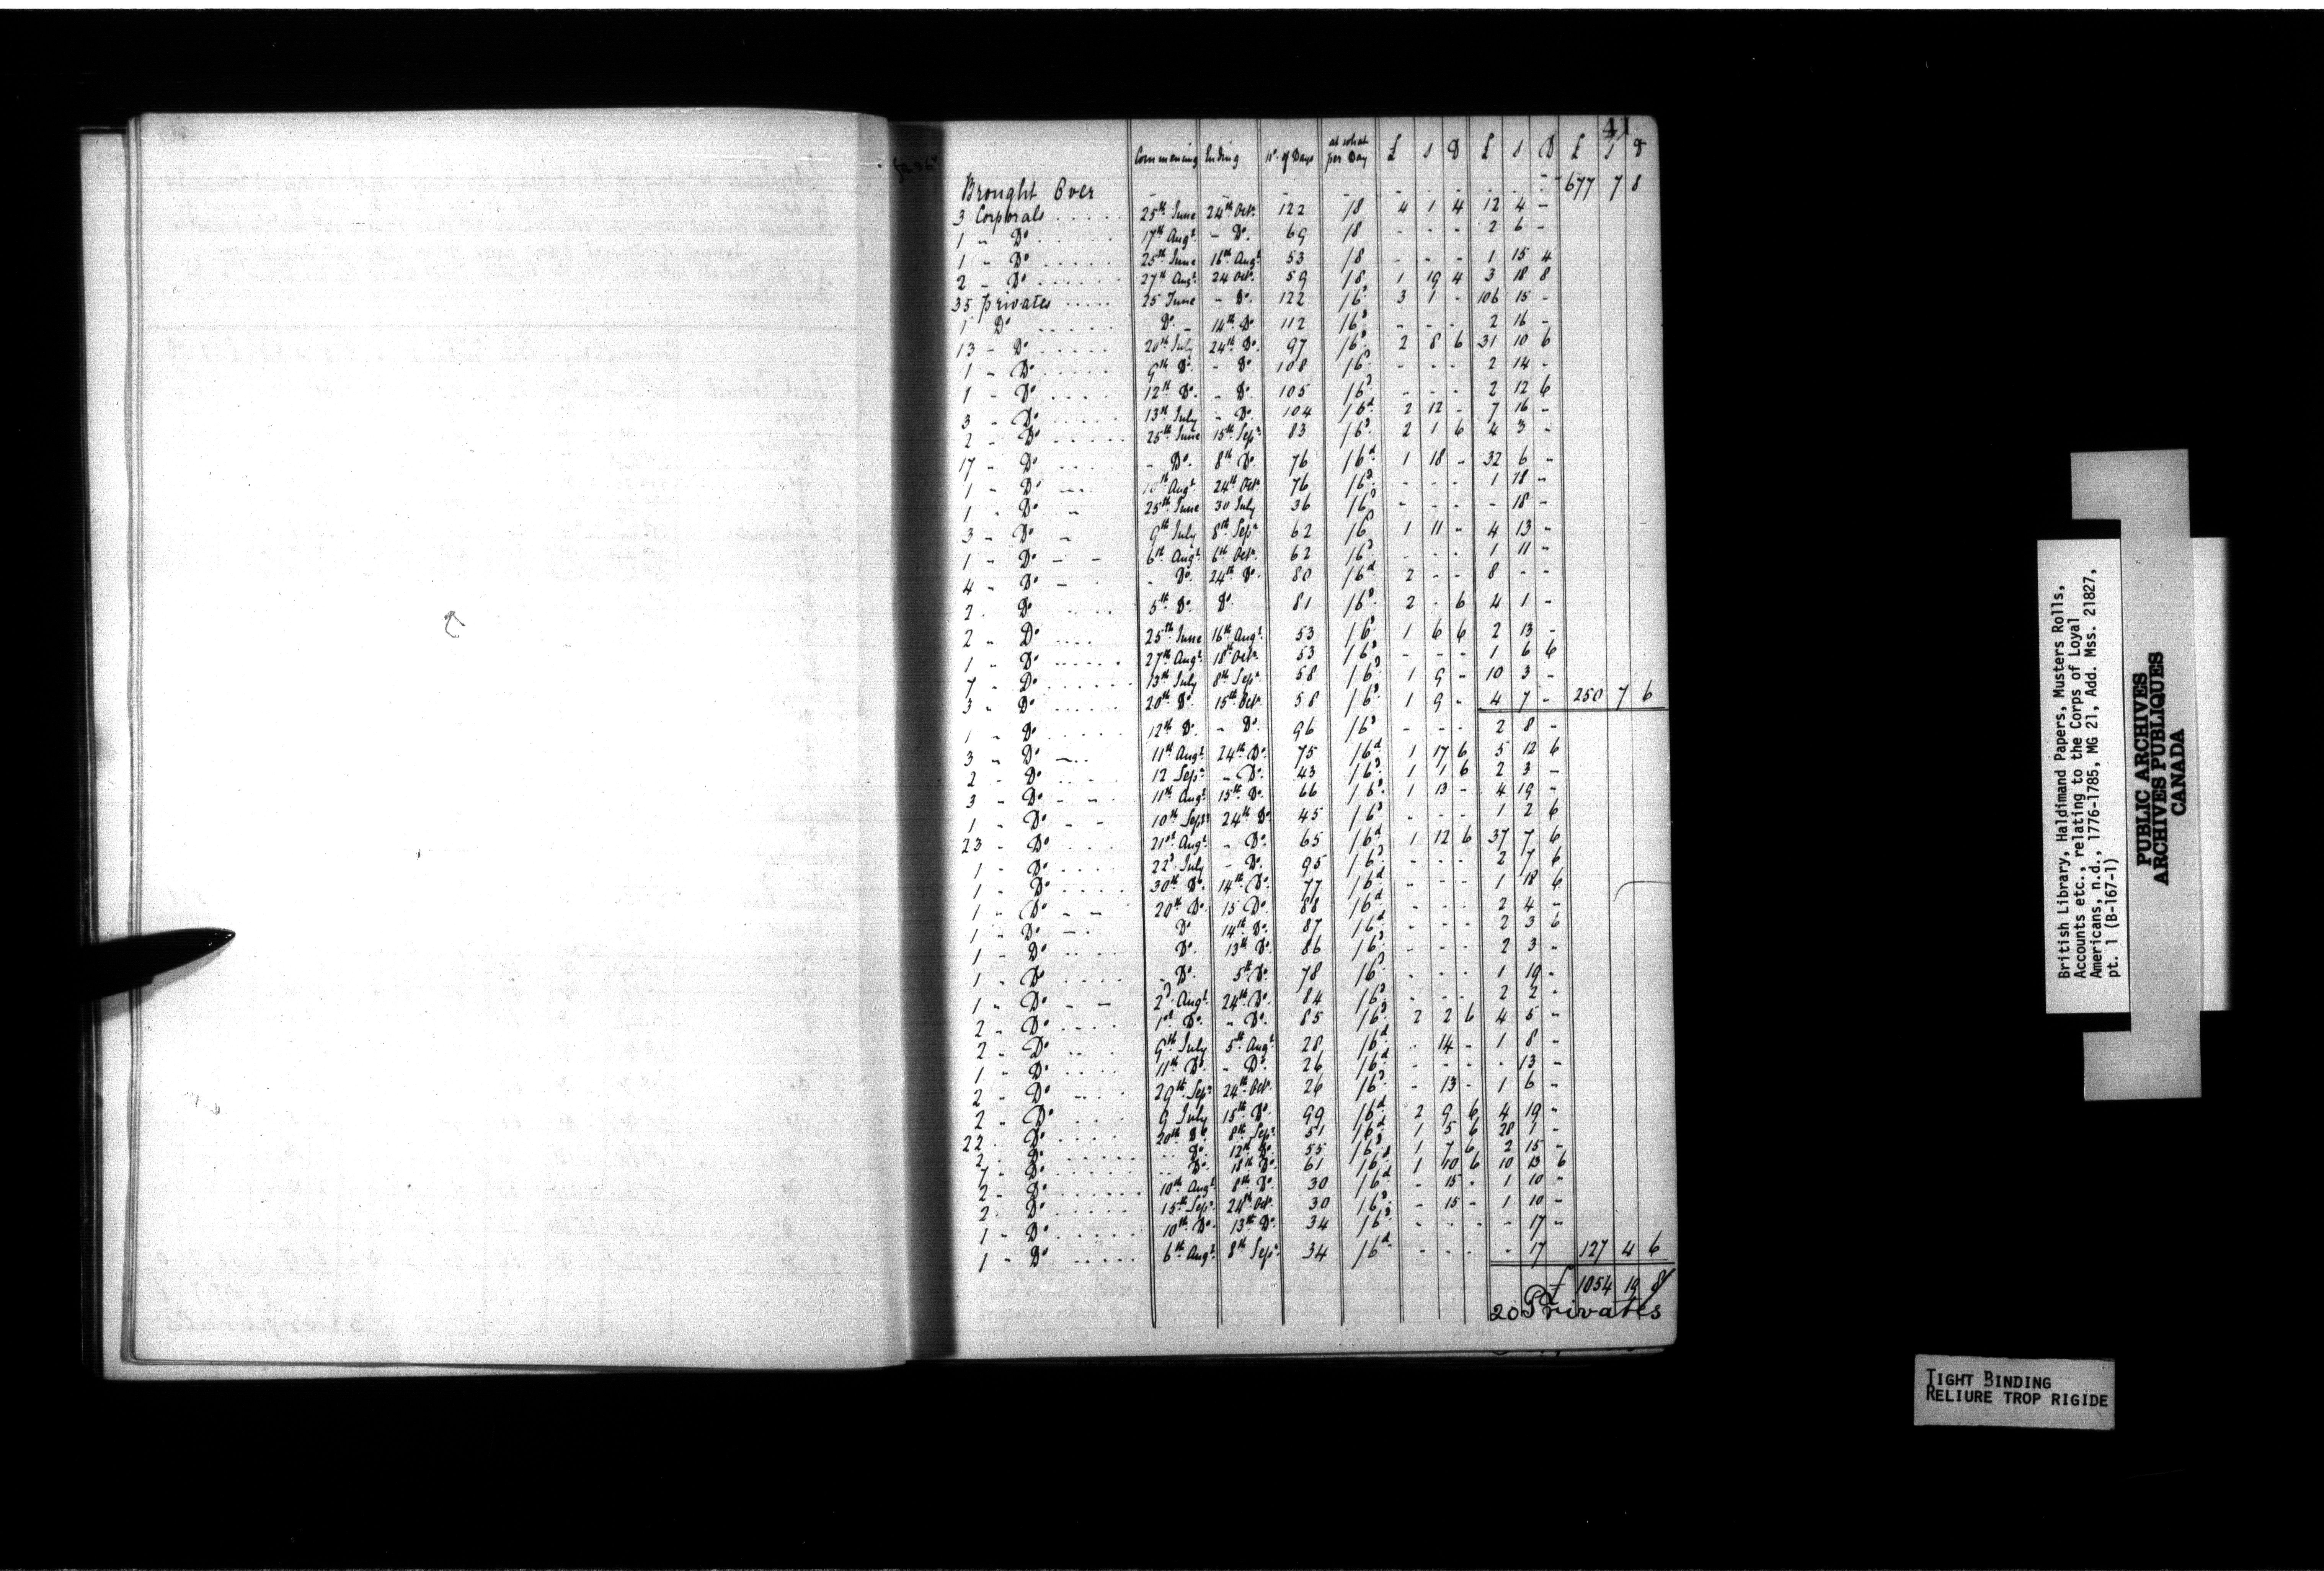 41
fo 36
Commencing Ending No. of Days at what per Day £ s D £ s D £ s D
Brought Over - - - - - - - - - - 677 7 8
3 Corporals . . . . . 25th June 24th Octr. 122 /8 4 1 4 12 4 -
1 - Do . . . . . 17th Augt. - Do. 69 /8 - - - 2 6 -
1 - Do . . . . . 25th June 16th Augt. 53 /8 - - - 1 15 4
2 - Do . . . . . 27th Augt. 24 Octr. 59 /8 1 19 4 3 18 8
35 privates . . . . . 25 June - Do. 122 /6d 3 1 - 106 15 -
1 Do . . . . . Do. - 14th Do. 112 /6d - - - 2 16 -
13 - Do . . . . . 20th July 24th Do. 97 /6d 2 8 6 31 10 6
1 - Do . . . . . 9th Do. - Do. 108 /6d - - - 2 14 -
1 - Do . . . . 12th Do. - Do. 105 /6d - - - 2 12 6
3 - Do . . . . 13th July - Do. 104 /6d 2 12 - 7 16 -
2 - Do . . . . . 25th June 15th Sepr. 83 /6d 2 1 6 4 3 -
17 - Do . . . - Do. 8th Do. 76 /6d 1 18 - 32 6 -
1 - Do . . . 10th Augt. 24th Octr. 76 /6d - - - 1 18 -
1 - Do - 25th June 30 July 36 /6d - - - - 18 -
3 - Do - 9th July 8th Sepr. 62 /6d 1 11 - 4 13 -
1 - Do - - 6th Augt. 6th Octr. 62 /6d - - - 1 11 -
4 - Do - - Do. 24th Do. 80 /6d 2 - - 8 - -
2 . Do . . . . 5th Do. Do. 81 /6d 2 - 6 4 1 -
2 - Do . . . . 25th June 16th Augt. 53 /6d 1 6 6 2 13 -
1 - Do . . . . . 27th Augt. 18th Octr. 53 /6d - - - 1 6 6
7 - Do . . . . . 13th July 8th Sepr. 58 /6d 1 9 - 10 3 -
3 - Do . . . . . 20th Do. 15th Octr. 58 /6d 1 9 - 4 7 - 250 7 6
1 - Do . . . . 12th Do. - Do. 96 /6d - - - 2 8 -
3 - Do - . . 11th Augt. 24th Do. 75 /6d 1 17 6 5 12 6
2 - Do . . . 12 Sepr. - Do. 43 /6d 1 1 6 2 3 -
3 - Do - - 11th Augt. 15th Do. 66 /6d 1 13 - 4 19 -
1 - Do - - 10th Sepr. 24th Do 45 /6d - - - 1 2 6
23 - Do . . . . 21st Augt. - Do. 65 /6d 1 12 6 37 7 6
1 - Do . . . . 22d July - Do. 95 /6d - - - 2 7 6
1 - Do . . . . 30th Do. 14th Do. 77 /6d - - - 1 18 6
1 - Do - - 20th Do. 15 Do. 88 /6d - - - 2 4 -
1 - Do - . Do 14th Do. 87 /6d - - - 2 3 6
1 - Do . . . . Do. 13th Do. 86 /6d - - - 2 3 -
1 - Do . . . . - Do. 5th Do. 78 /6d - - - 1 19 -
1 - Do - - 2d Augt. 24th Do. 84 /6d - - - 2 2 -
2 - Do . . . . 1st Do. - Do. 85 /6d 2 2 6 4 5 -
2 - Do . . . 9th July 5th Augt. 28 /6d - 14 - 1 8 -
1 - Do . . . . 11th Do. - Do. 26 /6d - - - - 13 -
2 - Do - . . 29th Sepr. 24th Octr. 26 /6d - 13 - 1 6 -
2 - Do . . . . 9 July 15th Do. 99 /6d 2 9 6 4 19 -
22 . Do . . . . 20th Do. 8th Sepr. 51 /6d 1 5 6 28 1 -
2 - Do . . . . . - Do. 12th Do. 55 /6d 1 7 6 2 15 -
7 - Do . . . . . - Do. 18th Do. 61 /6d 1 10 6 10 13 6
2 - Do . . . . . 10th Augt. 8th Do. 30 /6d - 15 - 1 10 -
2 - Do . . . . . 15th Sepr. 24th Octr. 30 /6d - 15 - 1 10 -
1 - Do . . . . . 10th Do. 13th Do. 34 /6d - - - - 17 -
1 - Do . . . . . 6th Augt. 8th Sepr. 34 /6d - - - - 17 127 4 6
£ 1054 19 8
20 Privates
British Library, Haldimand Papers, Musters Rolls,
Accounts etc., relating to the Corps of Loyal
Americans, n.d., 1776-1785, MG 21, Add. Mss. 21827,
pt. 1 (B-167-1)
PUBLIC ARCHIVES
ARCHIVES PUBLIQUES
CANADA
TIGHT BINDING
RELIURE TROP RIGIDE